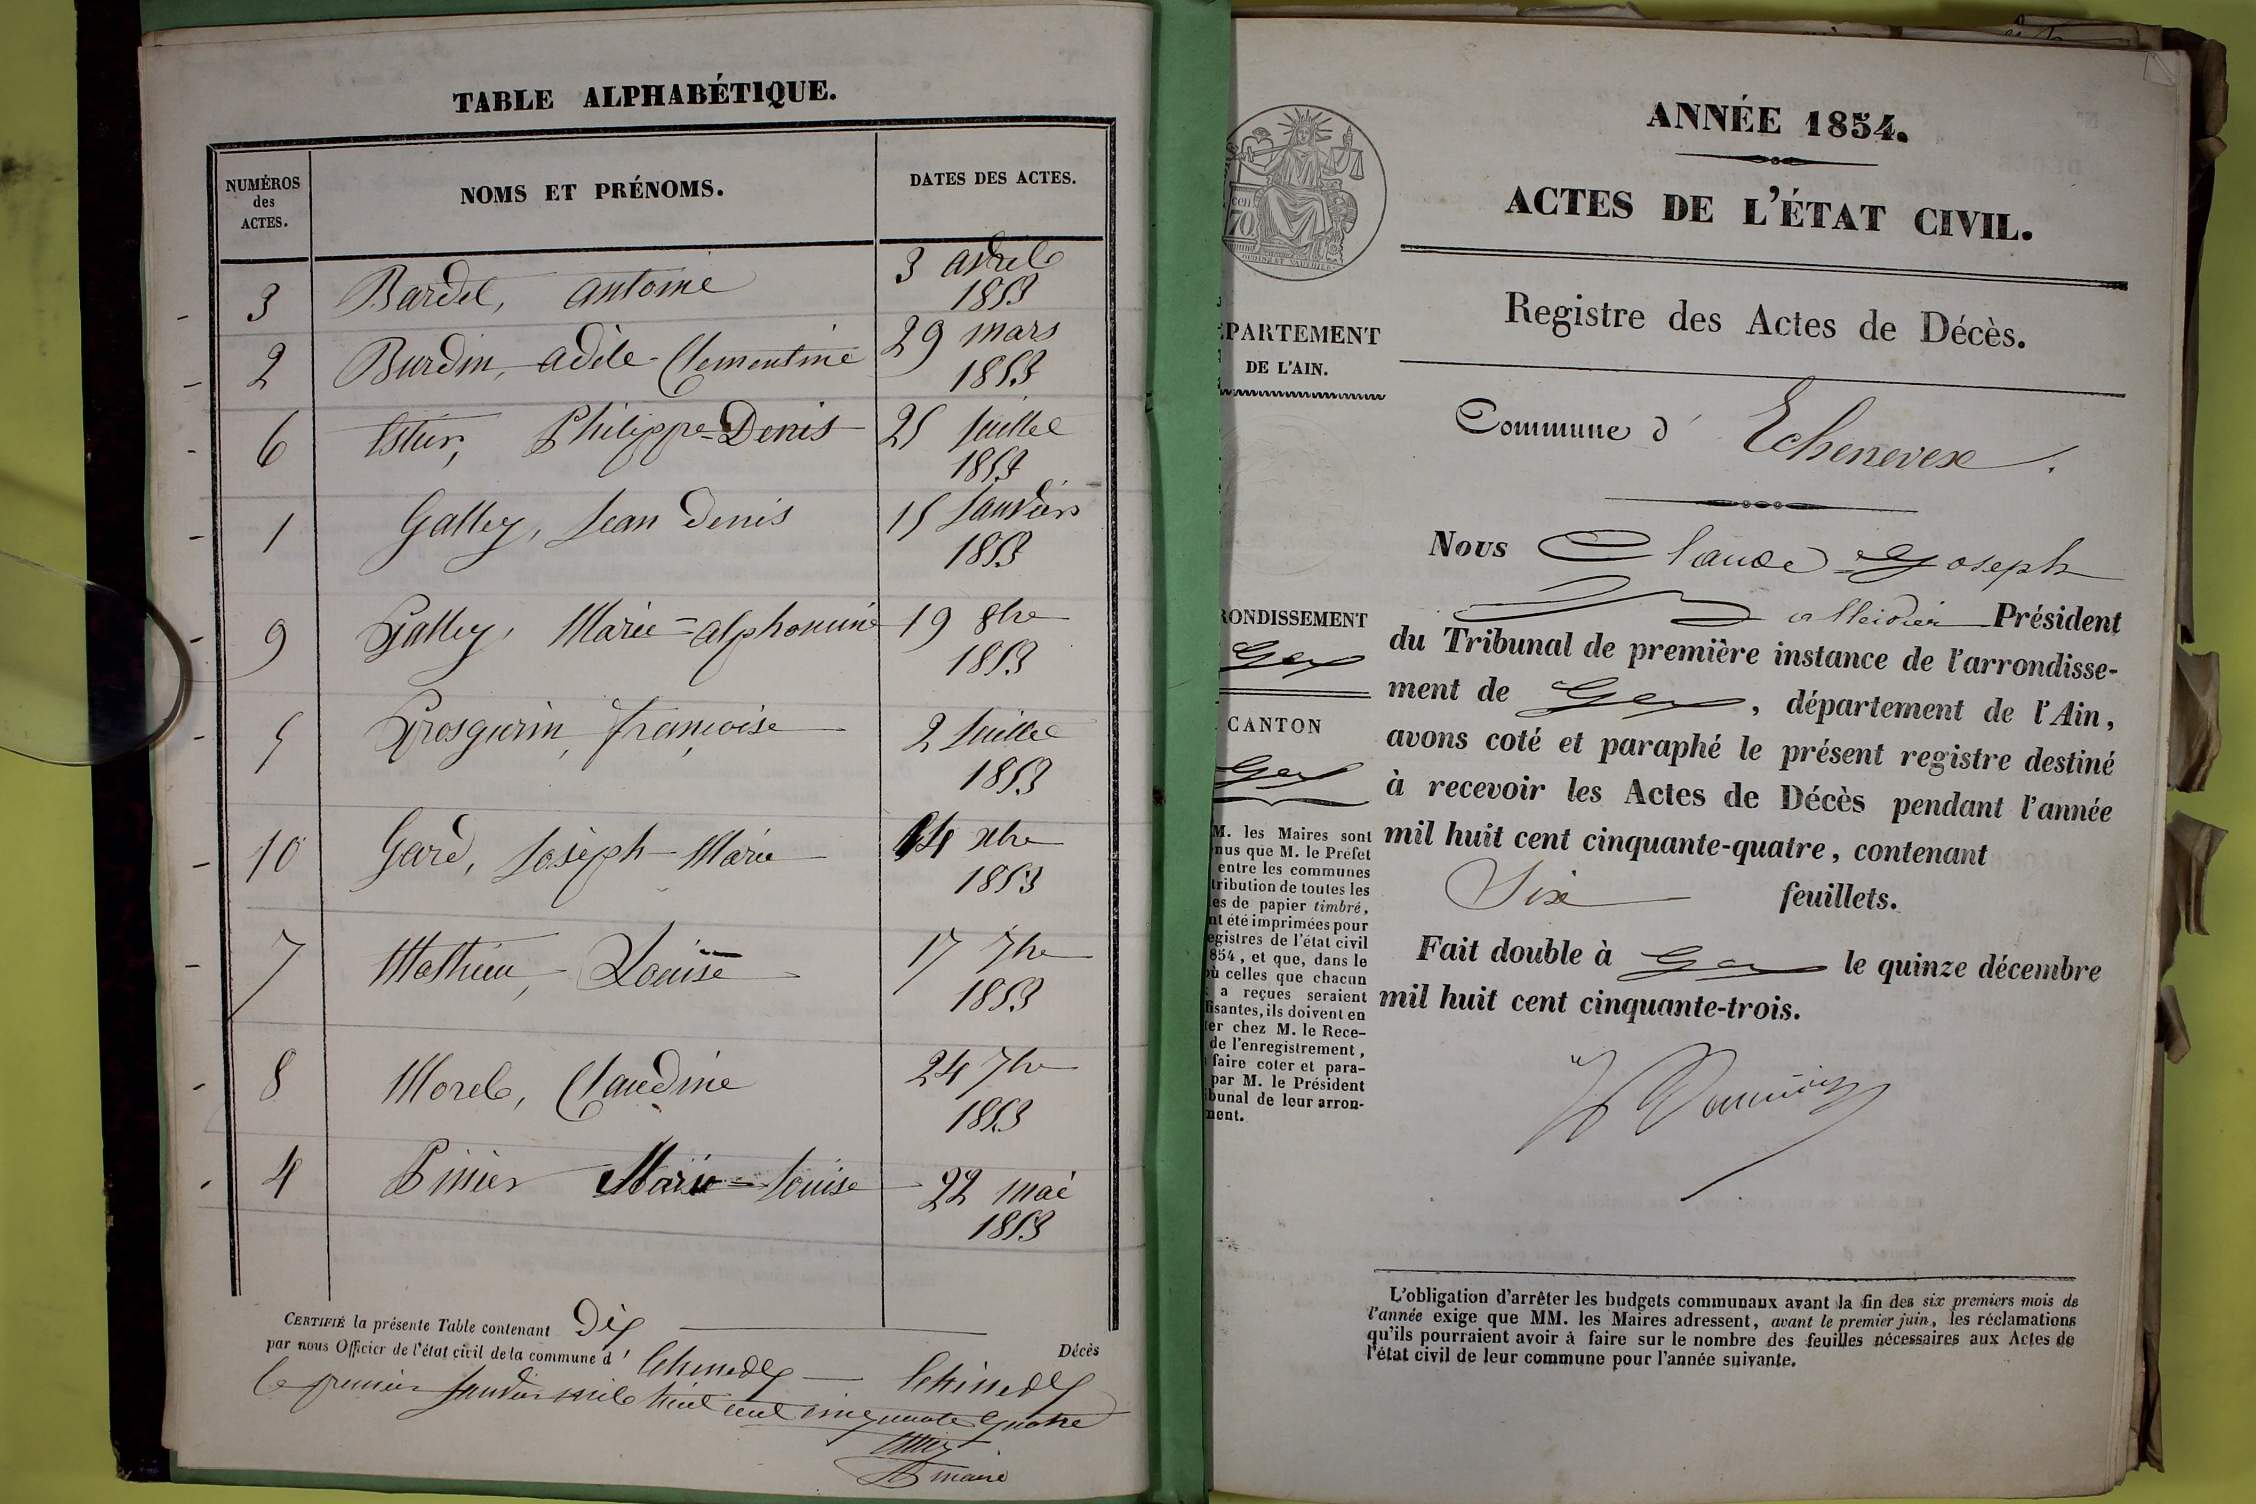 TABLE ALPHABÉTIQUE.
NUMÉROS des ACTES. NOMS ET PRÉNOMS. DATES DES ACTES.
3 Bardel, antoine 3 avril 1853
2 Burdin, adèle-Clementine 29 mars 1853
6 Philippe-Denis 25 juillet 1853
1 Galley, Jean denis 15 Janvier 1853
9 Galley, Marie=alphonsine 19 8bre 1853
5 Grosgurin, françoise 2 Juillet 1853
10 Gard, Joseph-Marie 14 xbre 1853
7 Mathieu, Louise 17 7bre 1853
8 Morel, Claudine 24 7bre 1853
4 Marie=Louise 22 mai 1853
CERTIFIÉ la présente Table contenant Dix Décès
par nous Officier de l'état civil de la commune d' Echenevex Echenevex
le premier janvier mil huit cent cinquante quatre
maire
ANNÉE 1854.
ACTES DE L'ÉTAT CIVIL.
cen 70
OUDINE ET VAUTHIER
Registre des Actes de Décès.
ÉPARTEMENT
DE L'AIN.
Commune d' Echenevex.
Nous Claude=Joseph
Président
du Tribunal de première instance de l'arrondisse-
ment de Gex, département de l'Ain,
avons coté et paraphé le présent registre destiné
à recevoir les Actes de Décès pendant l'année
mil huit cent cinquante-quatre, contenant
Six feuillets.
Fait double à Gex le quinze décembre
mil huit cent cinquante-trois.
RONDISSEMENT
Gex
CANTON
Gex
M. les Maires sont
nus que M. le Préfet
entre les communes
tribution de toutes les
es de papier timbré,
nt été imprimées pour
egistres de l'état civil
854, et que, dans le
où celles que chacun
a reçues seraient
fisantes, ils doivent en
ter chez M. le Rece-
de l'enregistrement,
faire coter et para-
par M. le Président
ibunal de leur arron-
ment.
L'obligation d'arrêter les budgets communaux avant la fin des six premiers mois de
l'année exige que MM. les Maires adressent, avant le premier juin, les réclamations
qu'ils pourraient avoir à faire sur le nombre des feuilles nécessaires aux Actes de
l'état civil de leur commune pour l'année suivante.